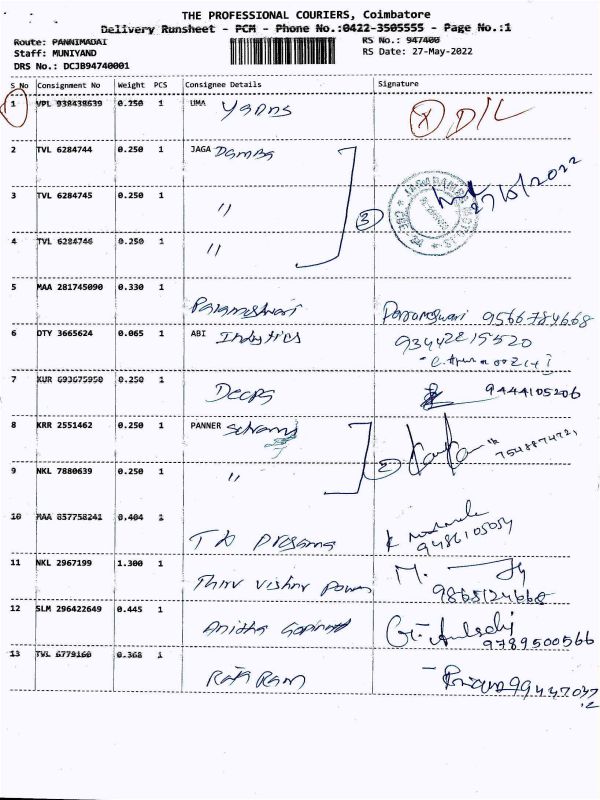 THE PROFESSIONAL COURIERS, Coimbatore
Delivery Runsheet - PCM - Phone No.:0422-3505555 - Page No.:1
Route: PANNIMADAI
RS No.: 947400
Staff: MUNIYAND
RS Date: 27-May-2022
DRS No.: DCJB94740001
S No Consignment No Weight PCS Consignee Details Signature
1 VPL 938438639 0.250 1 UMA D/L
2 TVL 6284744 0.250 1 JAGA Damba
27/5/2022
3 TVL 6284745 0.250 1 "
3
4 TVL 6284746 0.250 1 "
5 MAA 281745090 0.330 1
Parameshwari Parameswari 9566784668
6 DTY 3665624 0.065 1 ABI 93442215520
7 KUR 693675950 0.250 1
9444105206
8 KRR 2551462 0.250 1 PANNER
2
9 NKL 7880639 0.250 1 "
10 MAA 857758241 0.404 1
9486105054
11 NKL 2967199 1.300 1
Thiru Vishnu Power 9865124668
12 SLM 296422649 0.445 1
Anitha Gopinath
9789500566
13 TVL 6779160 0.368 1
Raja Ram